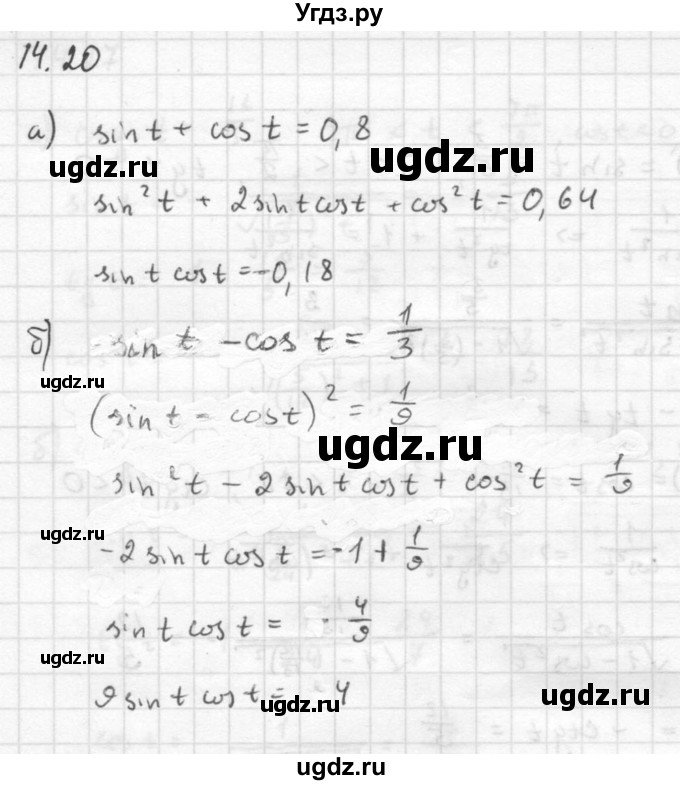 Угдз.ру
14.20
а) sin t + cos t = 0,8
ugdz.ru ugdz.ru
sin² t + 2 sin t cos t + cos² t = 0,64
sin t cos t = -0,18
б) sin t - cos t = 1/3
ugdz.ru
(sin t - cos t)² = 1/9
ugdz.ru
sin² t - 2 sin t cos t + cos² t = 1/9
ugdz.ru
-2 sin t cos t = -1 + 1/9
sin t cos t = 4/9
ugdz.ru
9 sin t cos t = 4
ugdz.ru ugdz.ru
ugdz.ru